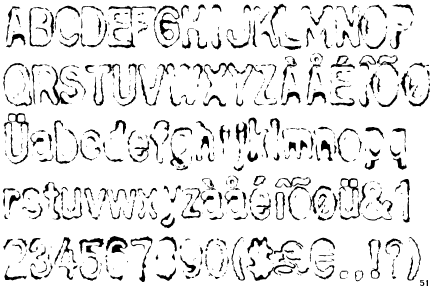 ABCDEFGHIJKLMNOP
QRSTUVWXYZÀÅÉÎÕØ
Üabcdefghijklmnopq
rstuvwxyzàåéîõøü&1
234567890($£€.,!?)
51